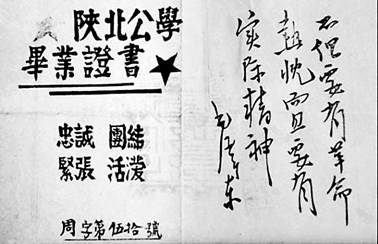 陝北公學
畢業證書
忠誠 團結
緊張 活潑
周字第伍拾號
不但要有革命
熱忱而且要有
实际精神
毛澤东